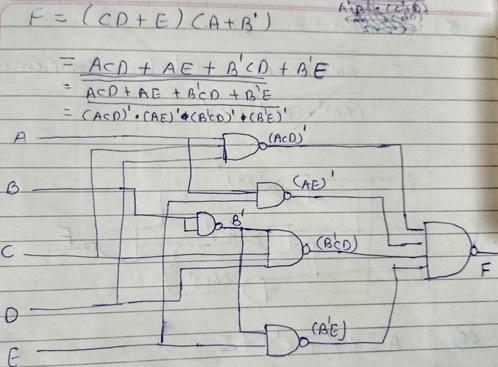 F = (CD+E)(A+B')
= ACD + AE + B'CD + B'E
= ACD + AE + B'CD + B'E
= (ACD)' • (AE)' • (B'CD)' • (B'E)'
A
(ACD)'
(AE)'
B
B'
C
(B'CD)
F
D
(B'E)
E